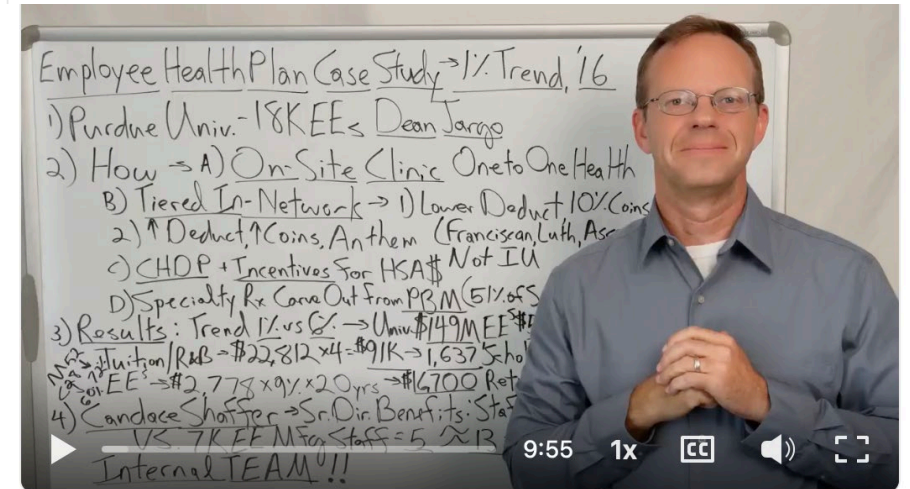 Employee Health Plan Case Study → 1% Trend, '16
1) Purdue Univ. - 18K EEs Dean Jargo
2) How → A) On-Site Clinic One to One Health
B) Tiered In-Network → 1) Lower Deduct 10% Coins
2) ↑ Deduct, ↑ Coins, Anthem (Franciscan, Luth, Asc
C) CHDP + Incentives for HSA$ Not IU
D) Specialty Rx Carve Out from PBM (51% of S
3) Results: Trend 1% vs 6% → Univ $149M EEs
Tuition/R&B → $22,812 x4 = $91K → 1,637 Schol
EEs → $2,778 x 9% x 20 yrs → $16700 Ret
4) Candace Shaffer → Sr. Dir. Benefits: Staf
VS. 7K EE Mfg Staff = 5 13
Internal TEAM!!
9:55 1x CC